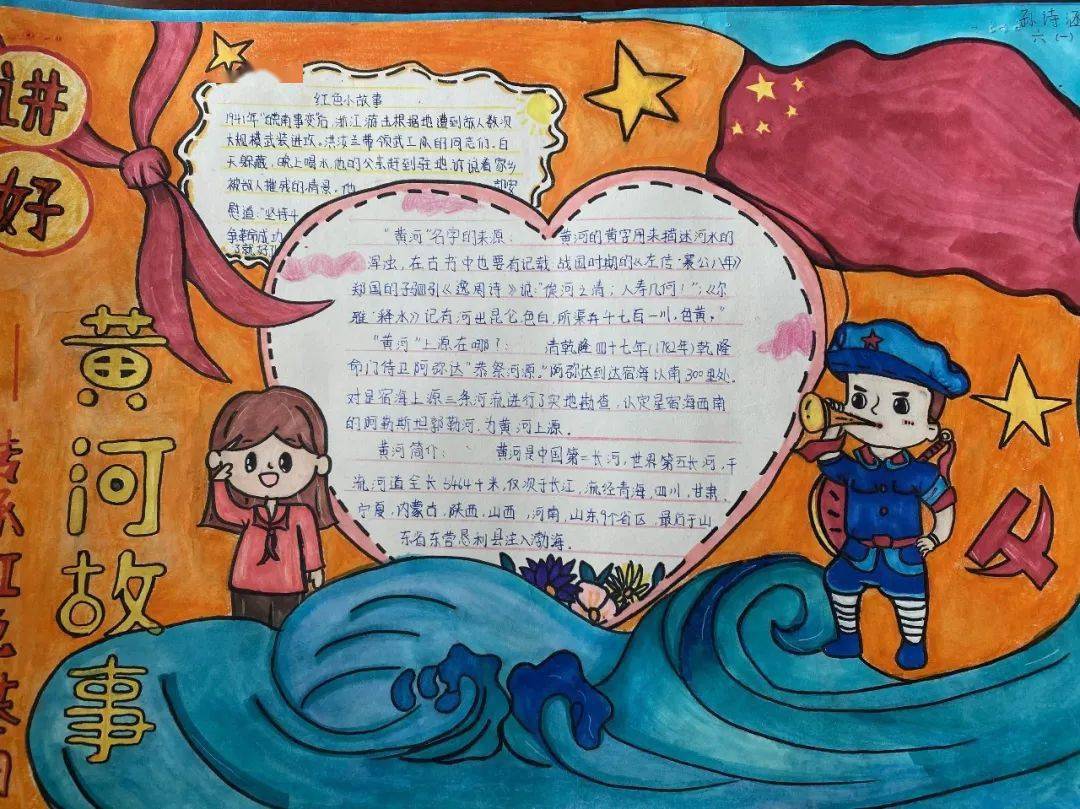 孙诗涵
六(一)
讲好
黄河故事
——传承红色基因
红色小故事
1941年“皖南事变”后,浙江游击根据地遭到敌人数次
大规模武装进攻。洪汝兰带领武工队的同志们,白
天躲藏,晚上喝水,他的父亲赶到驻地,诉说着家乡
被敌人摧残的情景,他
慰道:“坚持斗
争革命成功
了就好
“黄河”名字的来源: 黄河的黄字用来描述河水的
浑浊,在古书中也要有记载,战国时期的《左传·襄公八年》
郑国的子驷引《逸周诗》说:“俟河之清;人寿几何!”;《尔
雅·释水》记有河出昆仑,色白,所渠并千七百一川,色黄。”
“黄河”上源在哪?: 清乾隆四十七年(1782年)乾隆
命门侍卫阿弥达“恭祭河源。”阿弥达到达宿海以南300里处.
对星宿海上源三条河流进行了实地勘查,认定星宿海西南
的阿勒斯坦郭勒河,为黄河上源.
黄河简介: 黄河是中国第二长河,世界第五长河,干
流河道全长5464千米,仅次于长江,流经青海,四川,甘肃,
宁夏,内蒙古,陕西,山西,河南,山东9个省区,最后于山
东省东营恳利县注入渤海.